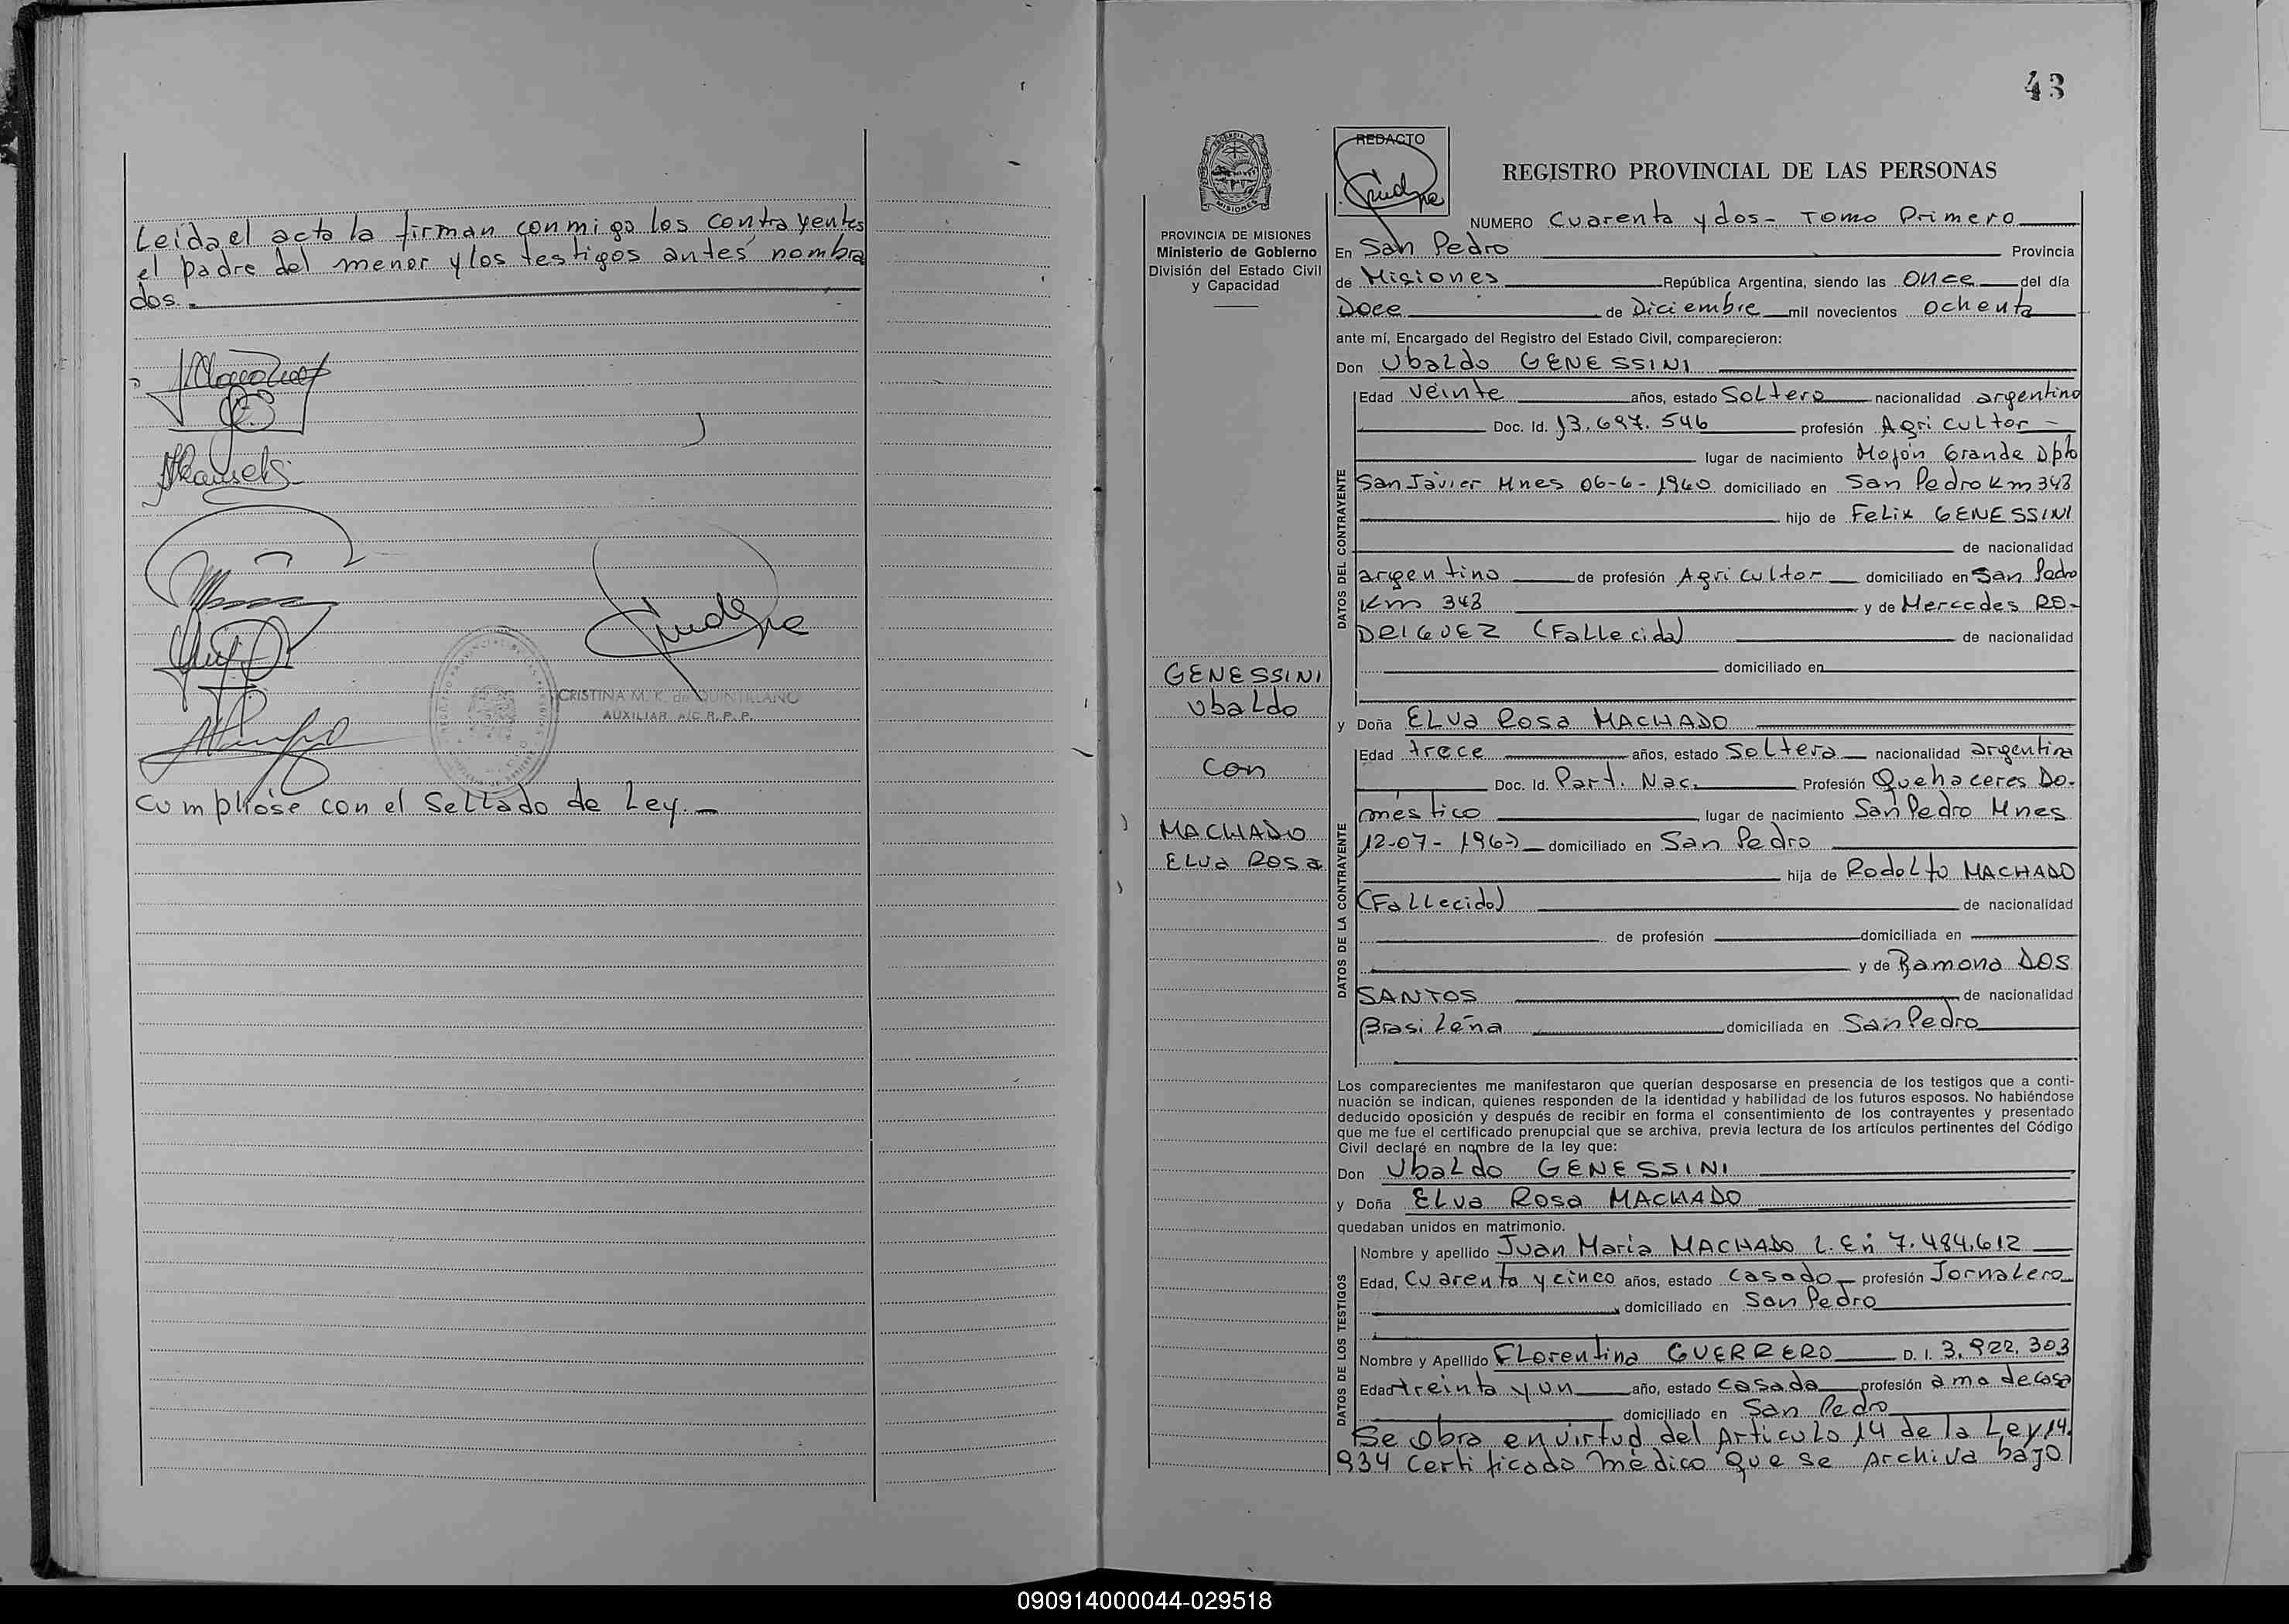 Leida el acta la firman conmigo los contrayentes
el padre del menor y los testigos antes nombra
dos.
CRISTINA M. K. de QUINTILLANO
AUXILIAR A/C R. P. P.
Cumpliose con el Sellado de Ley.-
43
PROVINCIA DE MISIONES
Ministerio de Gobierno
División del Estado Civil
y Capacidad
GENESSINI
Ubaldo
con
MACHADO
ELva ROSa
REDACTO
REGISTRO PROVINCIAL DE LAS PERSONAS
NUMERO Cuarenta y dos- Tomo Primero
En San Pedro Provincia
de Misiones República Argentina, siendo las Once del día
Doce de Diciembre mil novecientos ochenta
ante mí, Encargado del Registro del Estado Civil, comparecieron:
Don Ubaldo GENESSINI
DATOS DEL CONTRAYENTE
Edad veinte años, estado Soltero nacionalidad argentino
Doc. Id. 13.697.546 profesión Agricultor -
lugar de nacimiento Mojón Grande Dpto
San Javier Mnes 06-6-1960 domiciliado en San Pedro Km 343
hijo de Felix GENESSINI
de nacionalidad
argentino de profesión Agricultor domiciliado en San Pedro
Km 343 y de Mercedes RO-
DRIGUEZ (Fallecida) de nacionalidad
domiciliado en
y Doña ELva Rosa MACHADO
DATOS DE LA CONTRAYENTE
Edad trece años, estado Soltera nacionalidad argentina
Doc. Id. Part. Nac. Profesión Quehaceres Do-
méstico lugar de nacimiento San Pedro Mnes
12-07-1967 domiciliado en San Pedro
hija de Rodolfo MACHADO
(Fallecido) de nacionalidad
de profesión domiciliada en
y de Ramona DOS
SANTOS de nacionalidad
Brasileña domiciliada en San Pedro
Los comparecientes me manifestaron que querían desposarse en presencia de los testigos que a conti-
nuación se indican, quienes responden de la identidad y habilidad de los futuros esposos. No habiéndose
deducido oposición y después de recibir en forma el consentimiento de los contrayentes y presentado
que me fue el certificado prenupcial que se archiva, previa lectura de los artículos pertinentes del Código
Civil declaré en nombre de la ley que:
Don Ubaldo GENESSINI
y Doña ELva Rosa MACHADO
quedaban unidos en matrimonio.
DATOS DE LOS TESTIGOS
Nombre y apellido Juan Maria MACHADO L. En 7.484.612
Edad, Cuarenta y cinco años, estado casado profesión Jornalero
domiciliado en San Pedro
Nombre y Apellido Florentina GUERRERO D. I. 3.922.303
Edad treinta y un año, estado casada profesión ama de casa
domiciliado en San Pedro
Se obra en virtud del Articulo 14 de la Ley 14.
934 Certificado médico que se Archiva bajo
090914000044-029518